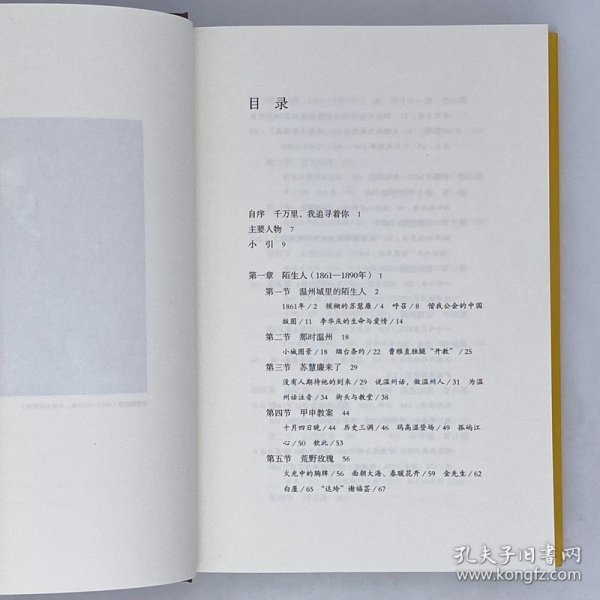 目 录
自序 千万里，我追寻着你 1
主要人物 7
小 引 9
第一章 陌生人（1861—1890年） 1
第一节 温州城里的陌生人 2
1861年／2 模糊的苏慧廉／4 呼召／8 偕我公会的中国
版图／11 李华庆的生命与爱情／14
第二节 那时温州 18
小城图景／18 烟台条约／22 曹雅直独腿“开教”／25
第三节 苏慧廉来了 29
没有人期待他的到来／29 说温州话，做温州人／31 为温
州话注音／34 街头与教堂／38
第四节 甲申教案 44
十月四日晚／44 历史三调／46 玛高温登场／49 孤屿江
心／50 钦此／53
第五节 荒野玫瑰 56
火光中的胸牌／56 面朝大海、春暖花开／59 金先生／62
白屋／65 “达玲”谢福芸／67
孔夫子旧书网
www.kongfz.com